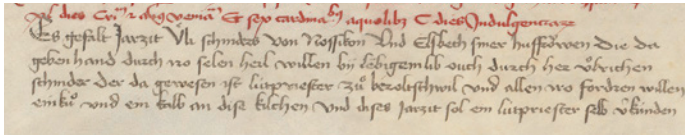 dies et sex cardina aquolibz C dies Indulgenciarum
Es gefalt Jarzit Uͦli schniders von Nossikon Und Elsbech siner husfrowen die da
geben hand durch iro selen heil willen by lebigem lib ouch durch her uͦlrichen
schnider der da gewesen ist lütpriester zuͦ beroltschwil und allen iro fordren willen
ein kuͦ und ein kalb an dise kilchen und dises Jarzit sol ein lütpriester selb verkünden